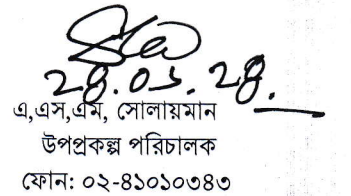 ২৪.০১.২৪.
এ,এস,এম, সোলায়মান
উপপ্রকল্প পরিচালক
ফোন: ০২-৪১০১০৩৪৩